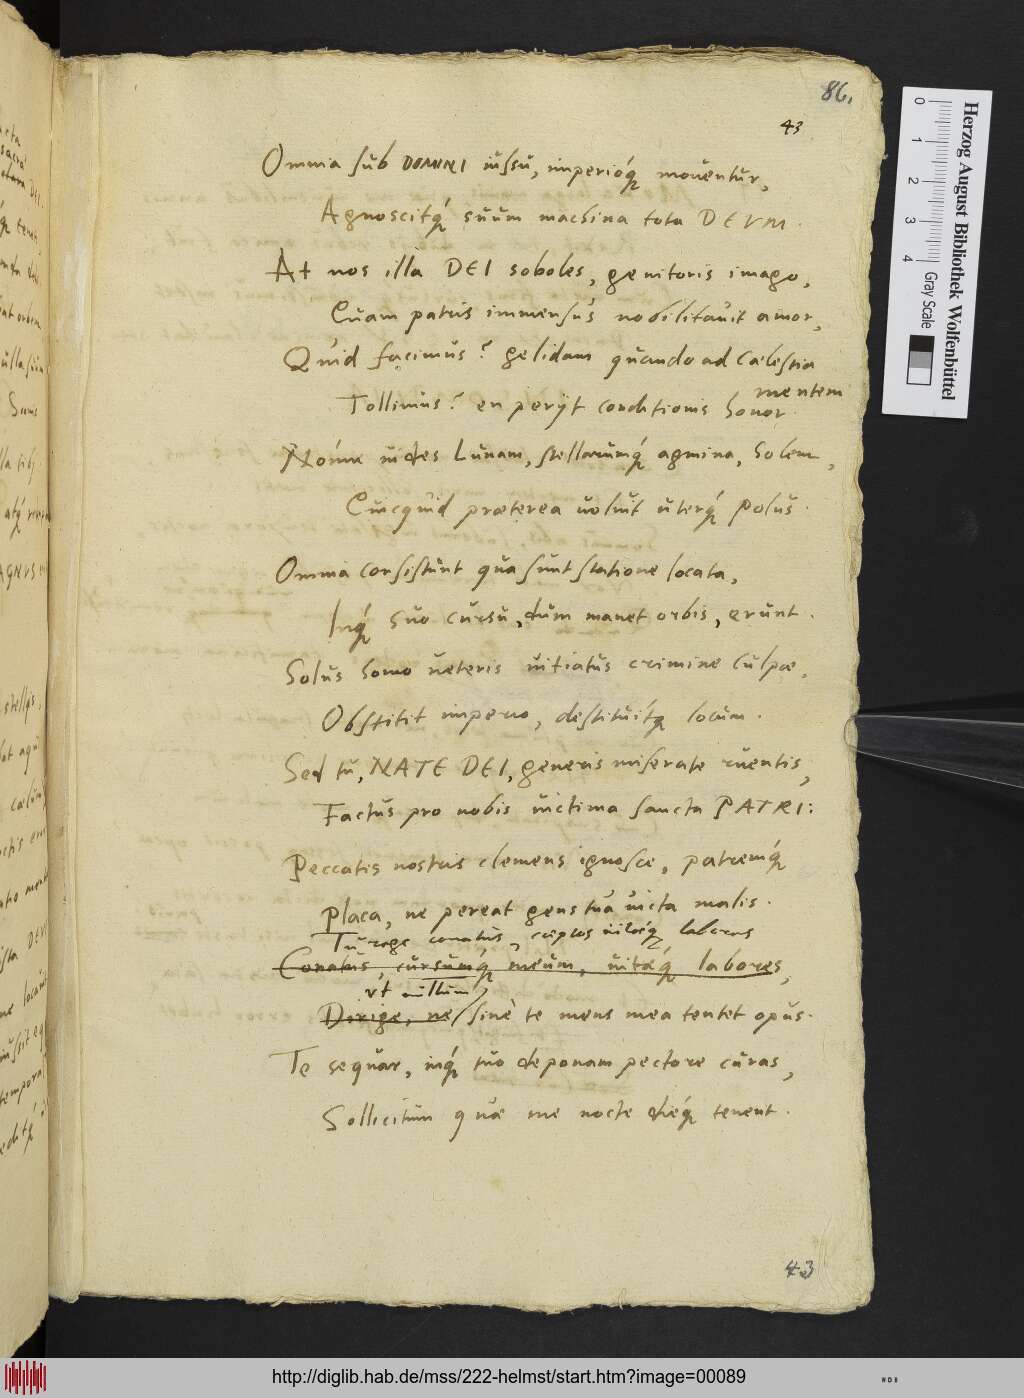 86.
43
Omnia sub DOMINI iussu, imperióq́; mouentur,
Agnoscitq́; suum machina tota DEVM.
At nos illa DEI soboles, genitoris imago,
Quam patris immensus nobilitauit amor,
Quid facimus? gelidam quando ad cælestia
mentem
Tollimus? en perijt conditionis honor.
Nónne uides Lunam, stellarumq́; agmina, Solem,
Quicquid præterea uoluit uterq́; polus.
Omnia consistunt qua sunt statione locata,
Inq́; suo cursu, dum manet orbis, erunt.
Solus homo ueteris uitiatus crimine culpæ,
Obstitit imperio, destituitq́; locum.
Sed tu, NATE DEI, generis miserate ruentis,
Factus pro nobis uictima sancta PATRI:
Peccatis nostris clemens ignosce, patremq́;
Placa, ne pereat gens tua uicta malis.
Tu rege conatus, cœptos labores
Conatus, cursumq́; meum, uitæq́; labores,
vt nullum
Dirige, ne sine te mens mea tentet opus.
Te sequar, inq́; tuo deponam pectore curas,
Sollicitum quæ me nocte dieq́; tenent.
43
Herzog August Bibliothek Wolfenbüttel
0 1 2 3 4
Gray Scale
http://diglib.hab.de/mss/222-helmst/start.htm?image=00089